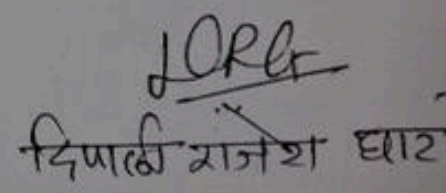 दिपाली राजेश घाट